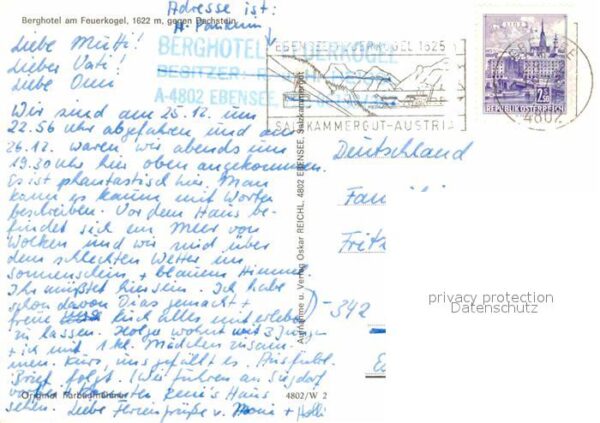 Berghotel am Feuerkogel, 1622 m, gegen Dachstein
Adresse ist:
BERGHOTEL FEUERKOGEL
BESITZER:
A-4802 EBENSEE,
Liebe Mutti!
Lieber Vati!
Liebe Omi
Wir sind am 25.12. um
22.56 Uhr abgefahren und am
26.12. waren wir abends um
19.30 Uhr hier oben angekommen.
Es ist phantastisch hier. Man
kann es kaum mit Worten
beschreiben. Vor dem Haus be-
findet sich ein Meer von
Wolken und wir sind über
dem schlechten Wetter im
Sonnenschein + blauem Himmel.
Ihr müßtet hier sein. Ich habe
schon davon Dias gemacht +
freue euch alles mit erleben
zu lassen. Holger wohnt mit 3 Jungen
+ ich mit 1 kl. Mädchen zusam-
men. Kurz, uns gefällt es. Ausführl.
Brief folgt. (Wir fuhren an
vorbei + konnten Haus
sehen. Liebe Feriengrüße v.
Original Farbaufnahme
4802/W 2
Aufnahme u. Verlag Oskar REICHL, 4802 EBENSEE, Salzkammergut
EBENSEE FEUERKOGEL 1625
SALZKAMMERGUT-AUSTRIA
4802
REPUBLIK ÖSTERREICH
Deutschland
Fam
Fritz
D-342
privacy protection
Datenschutz